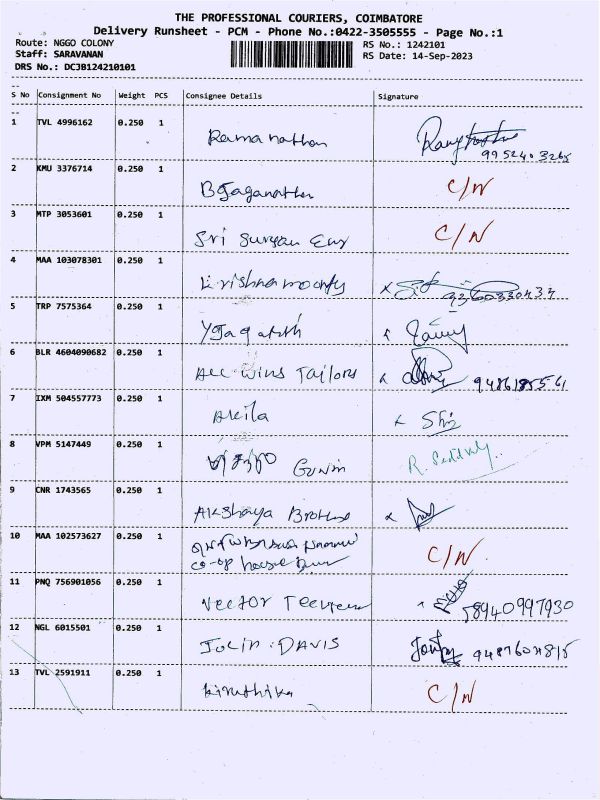 THE PROFESSIONAL COURIERS, COIMBATORE
Delivery Runsheet - PCM - Phone No.:0422-3505555 - Page No.:1
Route: NGGO COLONY
RS No.: 1242101
Staff: SARAVANAN
RS Date: 14-Sep-2023
DRS No.: DCJB124210101
S No Consignment No Weight PCS Consignee Details Signature
1 TVL 4996162 0.250 1 Ramanathan
9952403265
2 KMU 3376714 0.250 1 B Jaganathan C/N
3 MTP 3053601 0.250 1 Sri Suryan Eng C/N
4 MAA 103078301 0.250 1 Krishnamoorthy x 9360330434
5 TRP 7575364 0.250 1
6 BLR 4604090682 0.250 1 All wins Tailors
7 IXM 504557773 0.250 1 Akila
8 VPM 5147449 0.250 1
9 CNR 1743565 0.250 1 Akshaya
10 MAA 102573627 0.250 1 C/N
co-op house
11 PNQ 756901056 0.250 1 Vector
8940997930
12 NGL 6015501 0.250 1 Jolin . DAVIS
13 TVL 2591911 0.250 1 Kiruthika C/N